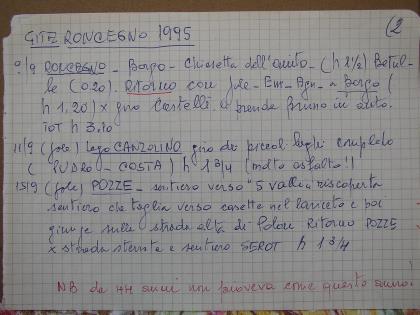 GITE RONCEGNO 1995
2
9/9 RONCEGNO - Borgo - Chiesetta dell'aiuto - (h 2½) Betul-
le (0.20). Ritorno con Jole - Em - Agn - a Borgo (
h 1,20) x giro Castelli e prende Bruno in auto.
TOT h 3.10
11/9 (Jole) Lago CANZOLINO giro dei piccoli laghi completo
( PUDRO - COSTA) h 1 3/4 (molto asfalto!)
15/9 (Jole) POZZE - sentiero verso "5 valli" riscoperta
sentiero che taglia verso casette nel lariceto e poi
giunge sulla strada alta di Ritorno POZZE
x strada sterrata e sentiero SEROT h 1 3/4
NB da 44 anni non pioveva come quest'anno!